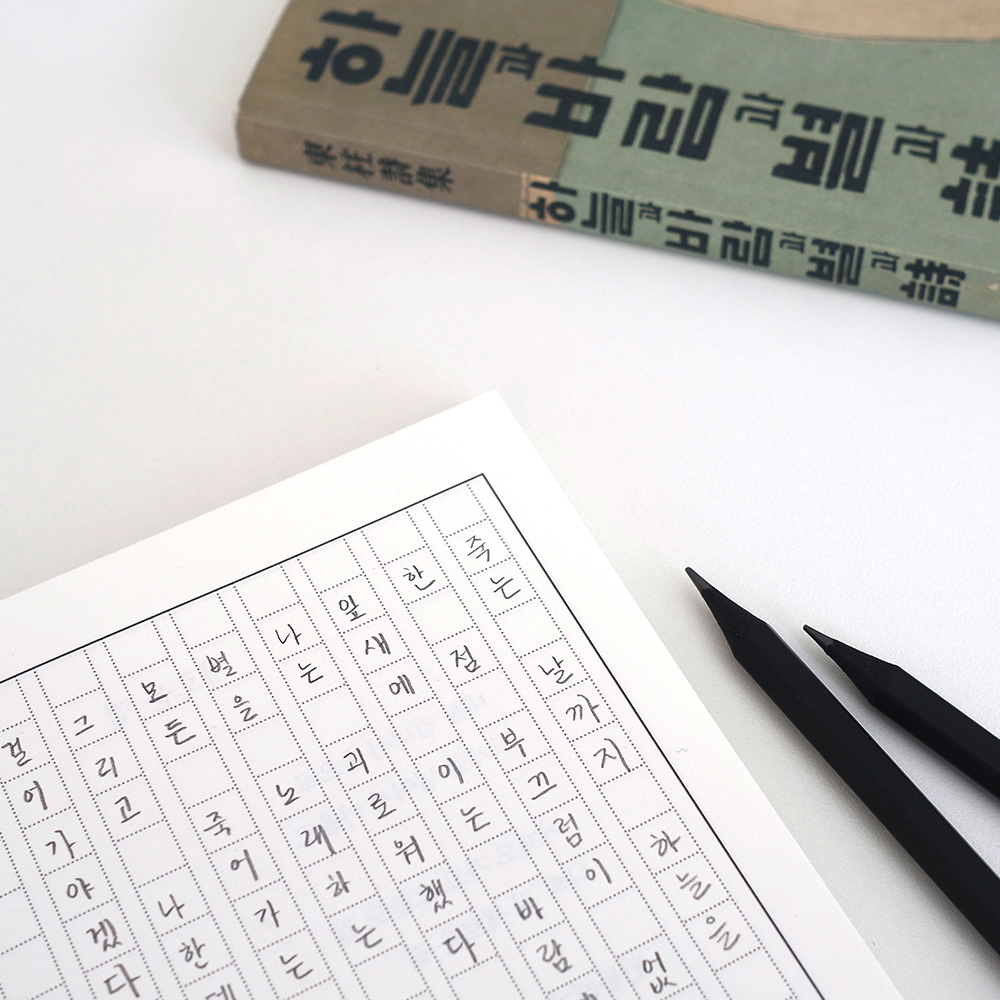 하늘과 바람과 별과 詩
東柱詩集 하늘과 바람과 별과 詩
죽는 날까지 하늘을
한 점 부끄럼이 없
잎새에 이는 바람
나는 괴로워했다
별을 노래하는
모든 죽어가는
그리고 나한테
걸어가야겠다